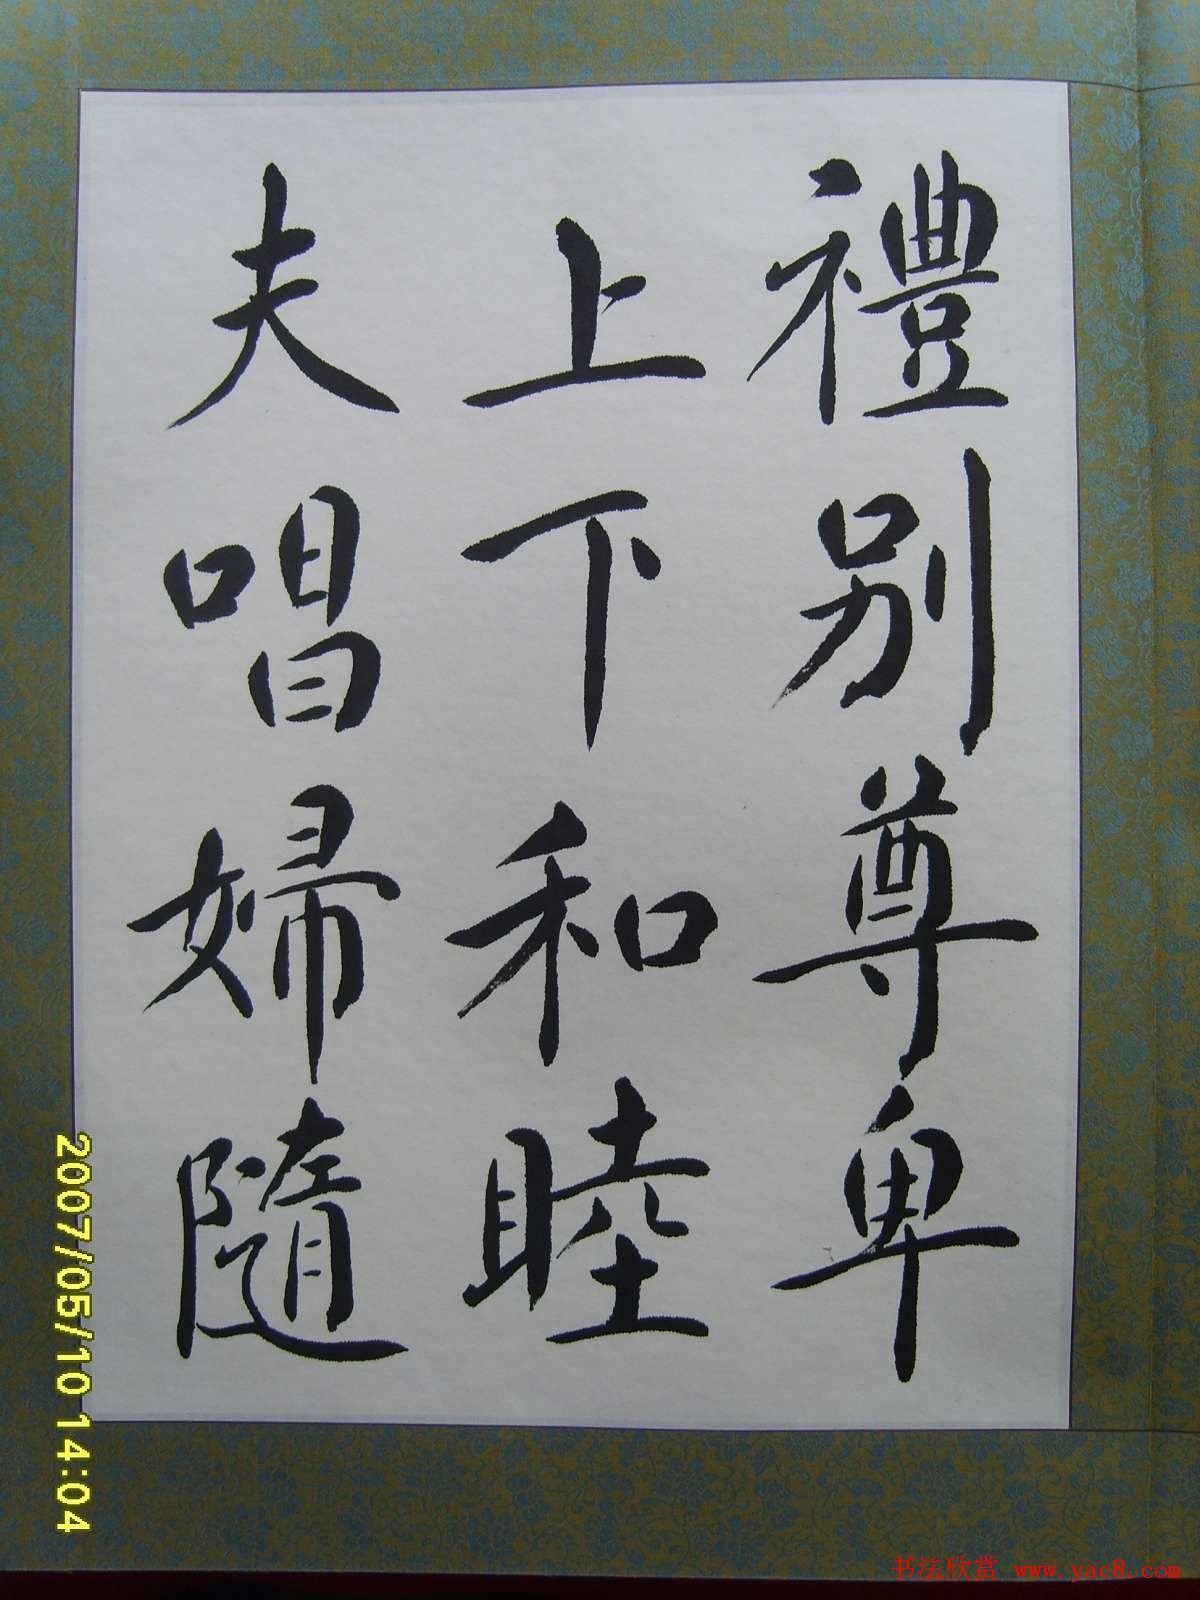 禮別尊卑
上下和睦
夫唱婦隨
2007/05/10 14:04
书法欣赏 www.yac8.com